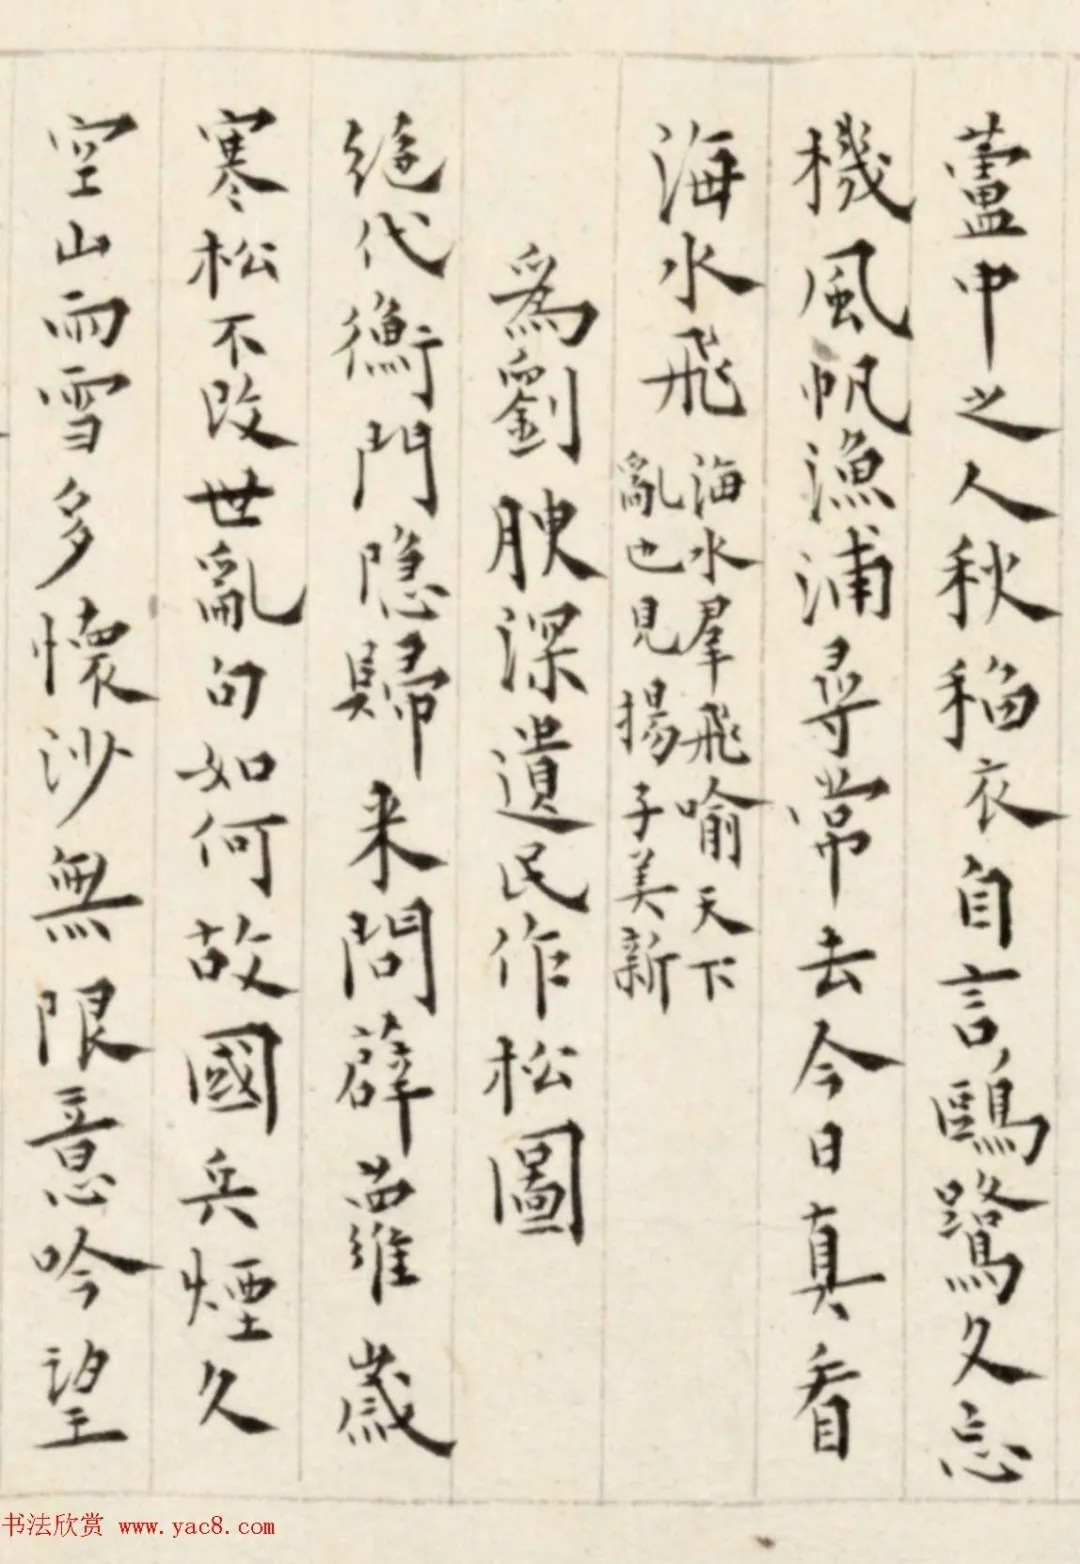 蘆中之人秋稻衣自言鷗鷺久忘
機風帆漁浦尋常去今日真看
海水飛
海水羣飛喻天下
亂也見揚子美新
為劉腴深遺民作松圖
絕代衡門隱歸来問薜蘿歲
寒松不改世亂句如何故國兵煙久
空山雨雪多懷沙無限意吟望
书法欣赏 www.yac8.com